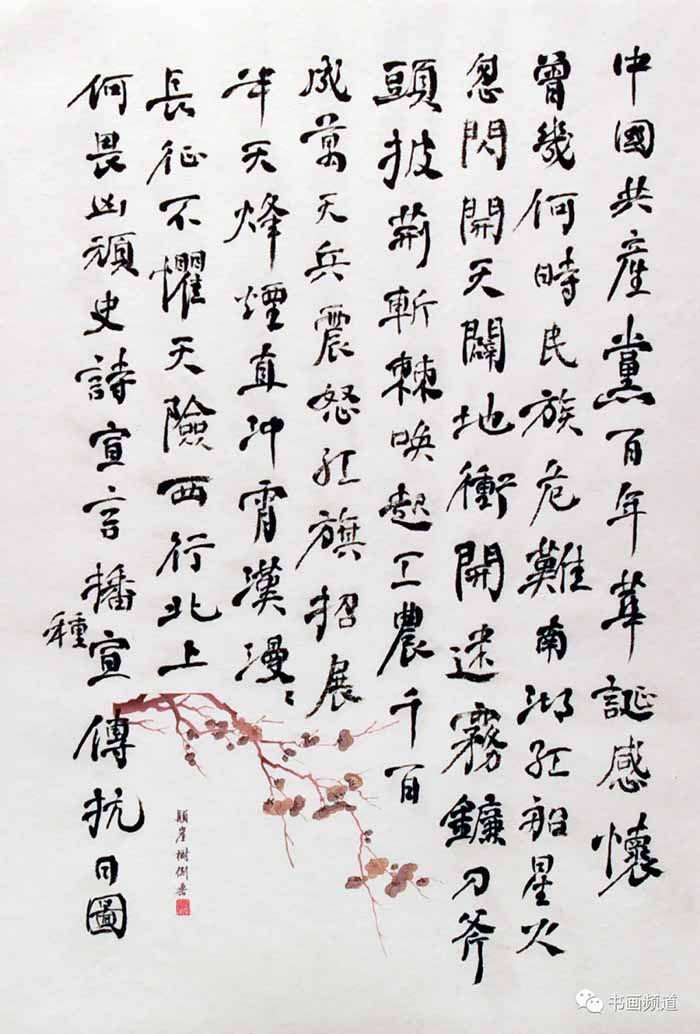 中國共產黨百年華誕感懷
曾幾何時民族危難南湖紅船星火
忽閃開天闢地衝開迷霧鐮刀斧
頭披荊斬棘喚起工農千百
成萬天兵震怒紅旗招展
半天烽煙直沖霄漢漫〻
長征不懼天險西行北上
何畏凶頑史詩宣言播宣傳抗日圖
種
书画频道